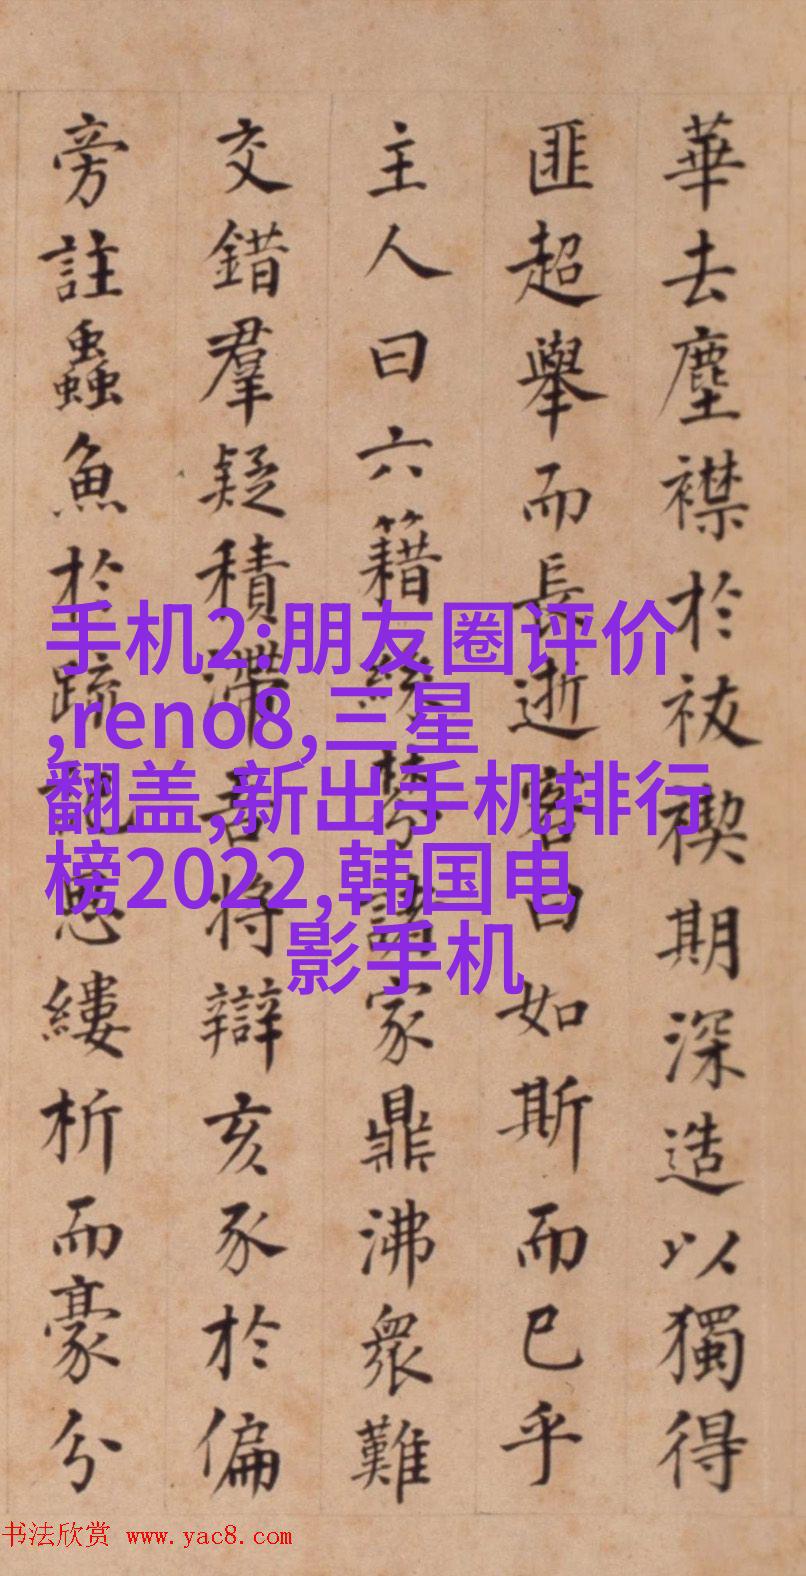 華去塵襟於祓禊期深造以獨得
匪超舉而長逝客曰如斯而已乎
主人曰六籍棼諸家鼎沸衆難
交錯羣疑積滯吾將辯亥豕於偏
旁註蟲魚於疏思縷析而豪分
手机2:朋友圈评价
,reno8,三星
翻盖,新出手机排行
榜2022,韩国电
影手机
书法欣赏 www.yac8.com